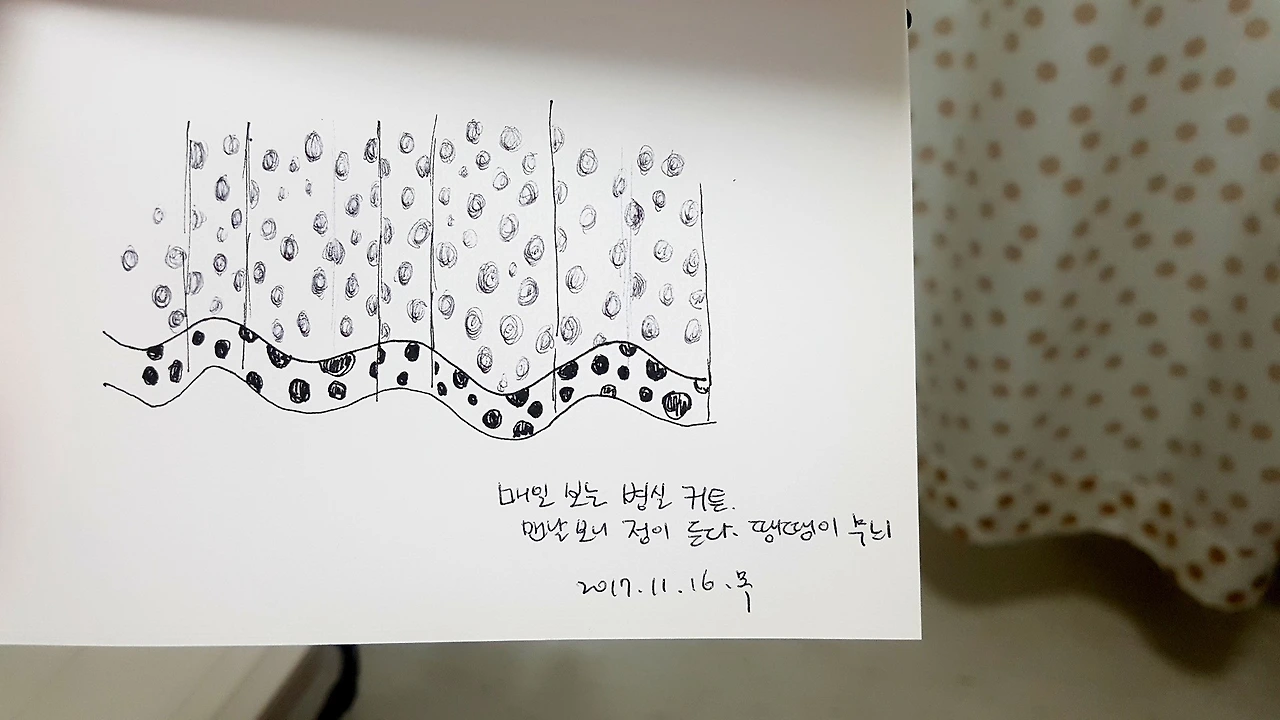 매일 보는 병실 커튼.
맨날 보니 정이 든다. 땡땡이 무늬
2017.11.16.목